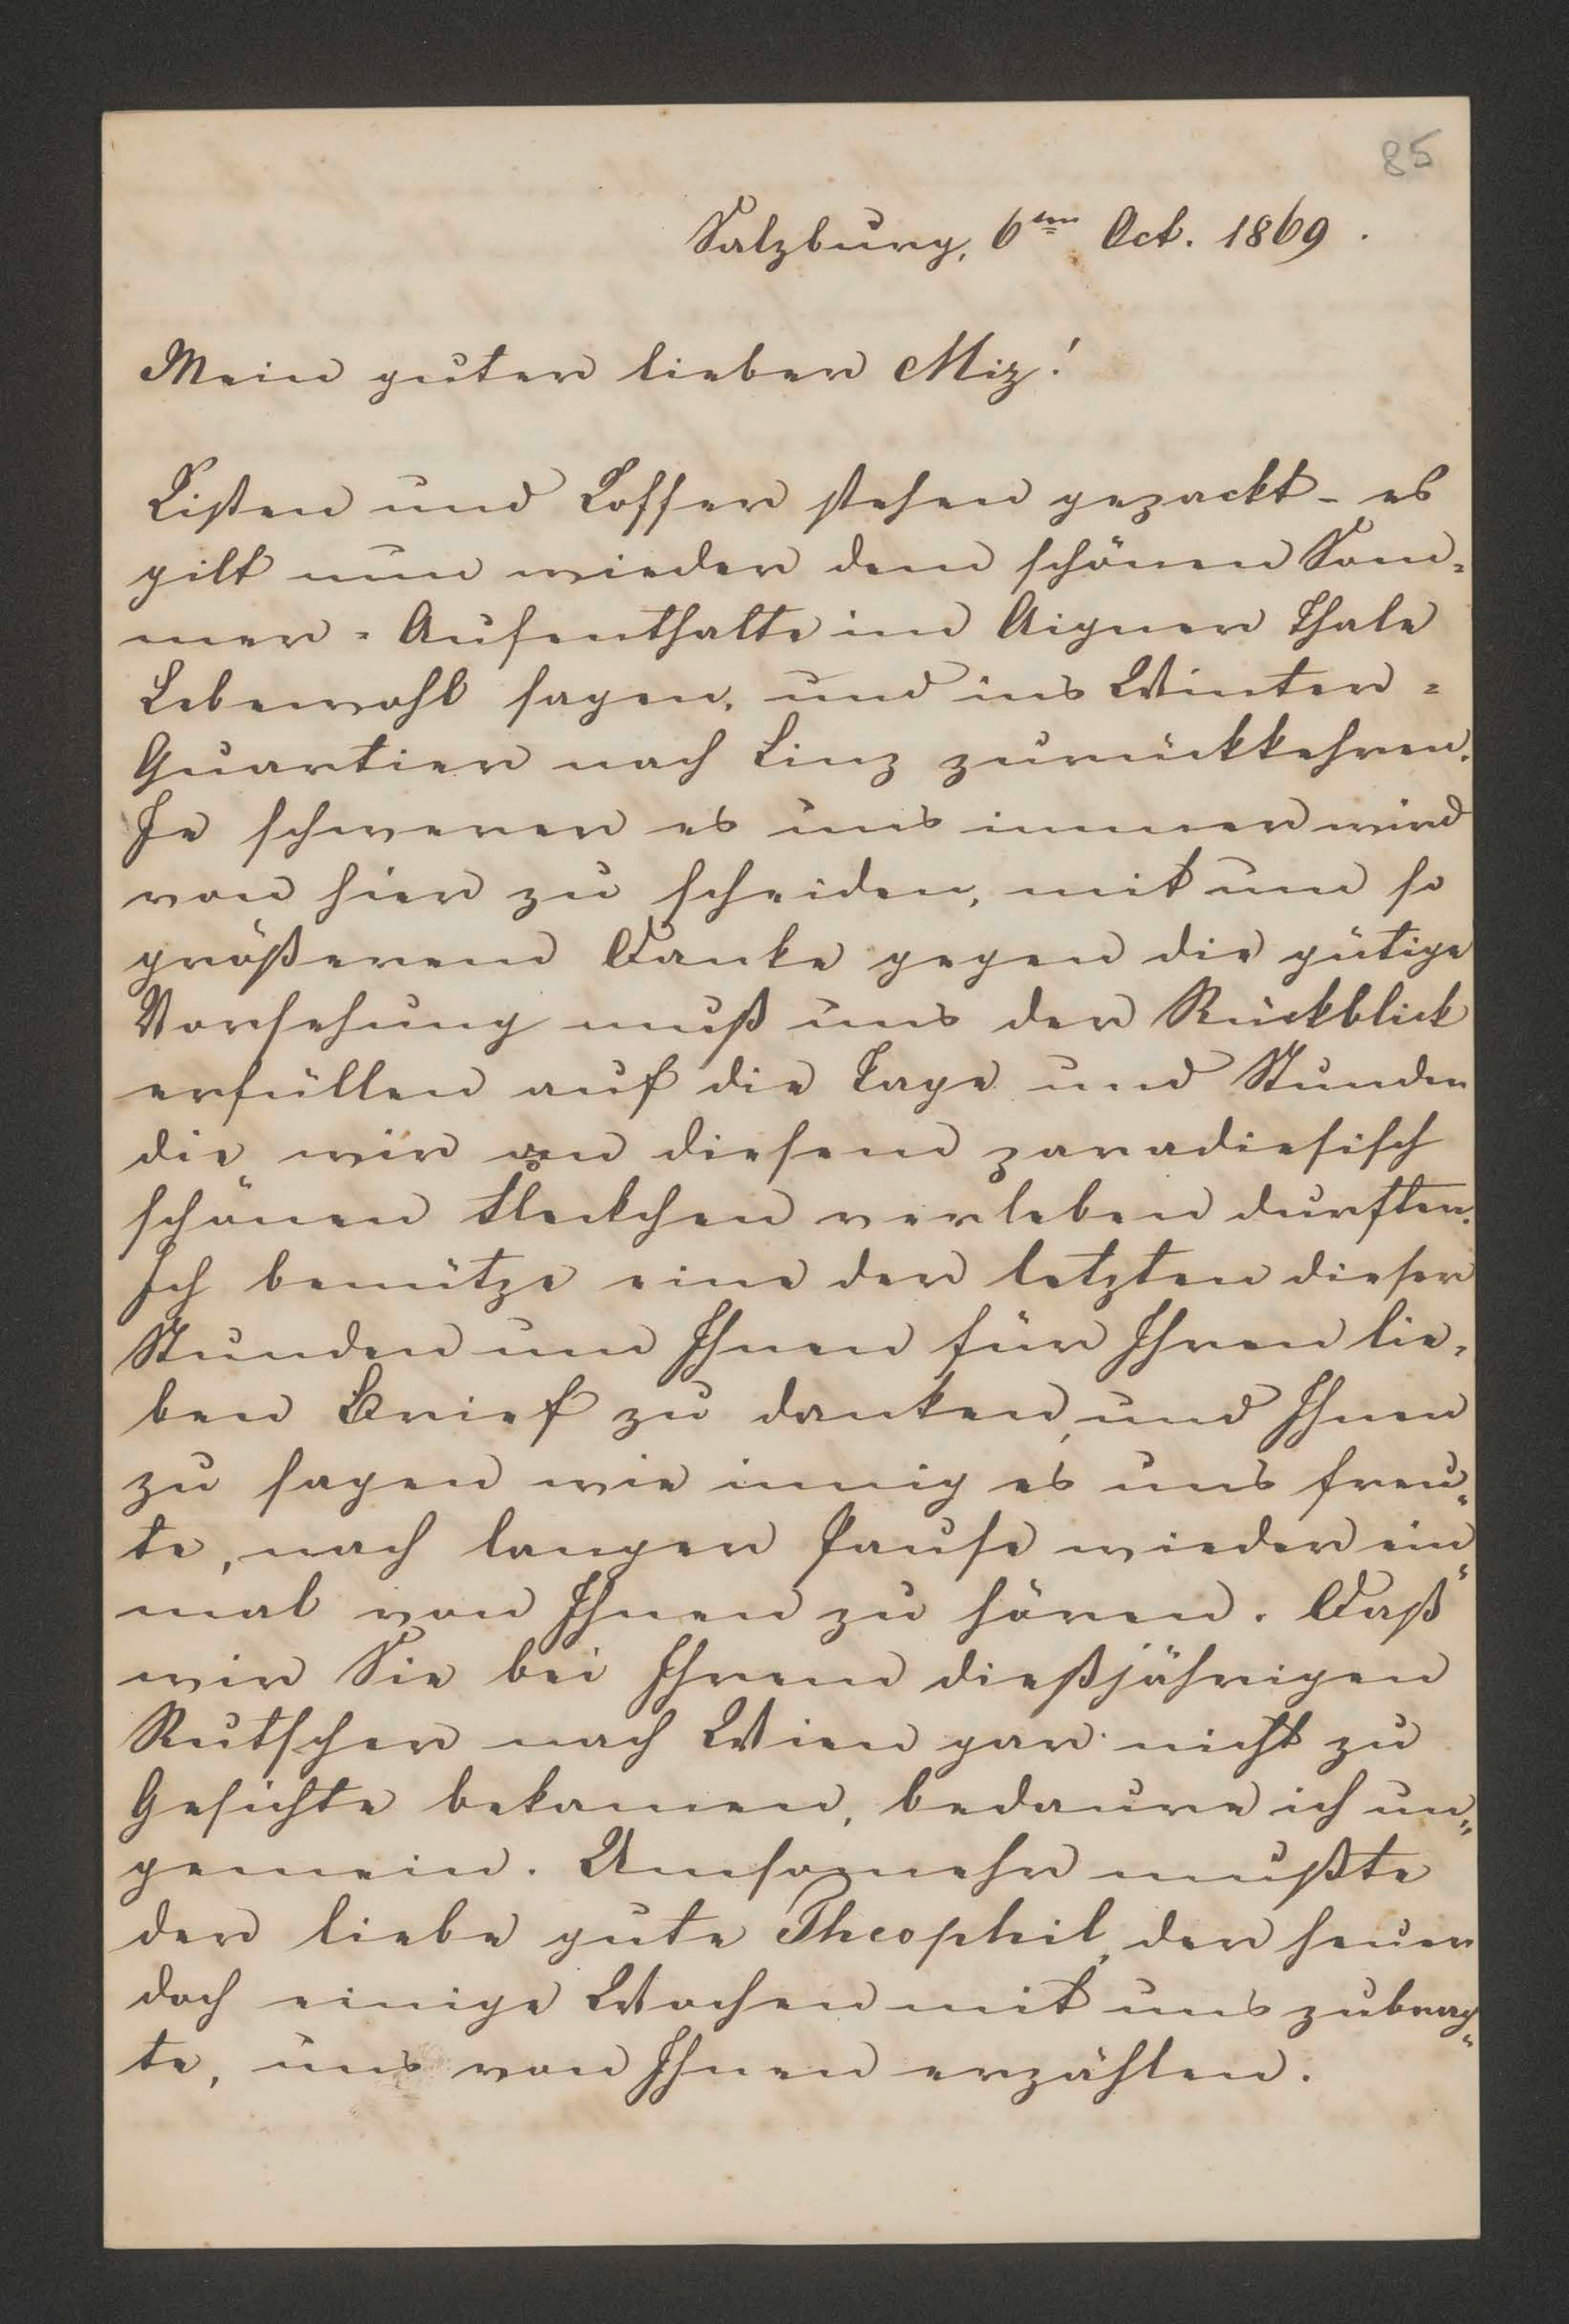 85
Salzburg, 6ten Oct. 1869.
Mein guter lieber Miz!
Kisten und Koffer stehen gepackt - es
gilt nun wieder dem schönen Som=
mer = Aufenthalte im Aigner Thale
Lebewohl sagen, und ins Winter =
Quartier nach Linz zurückkehren.
Je schwerer es uns immer wird
von hier zu scheiden, mit um so
größerem Danke gegen die gütige
Vorsehung muß uns der Rückblick
erfüllen auf die Tage und Stunden
die wir an diesem paradiesisch
schönen Fleckchen verleben durften.
Ich benütze eine der letzten dieser
Stunden um Ihnen für Ihren lie=
ben Brief zu danken, und Ihnen
zu sagen wie innig es uns freu=
te, nach langer Pause wieder ein=
mal von Ihnen zu hören. Daß
wir Sie bei Ihrem dießjährigen
Rutscher nach Wien gar nicht zu
Gesichte bekamen, bedaure ich un=
gemein. Umsomehr mußte
der liebe gute Theophil, der heuer
doch einige Wochen mit uns zubrach=
te, uns von Ihnen erzählen.